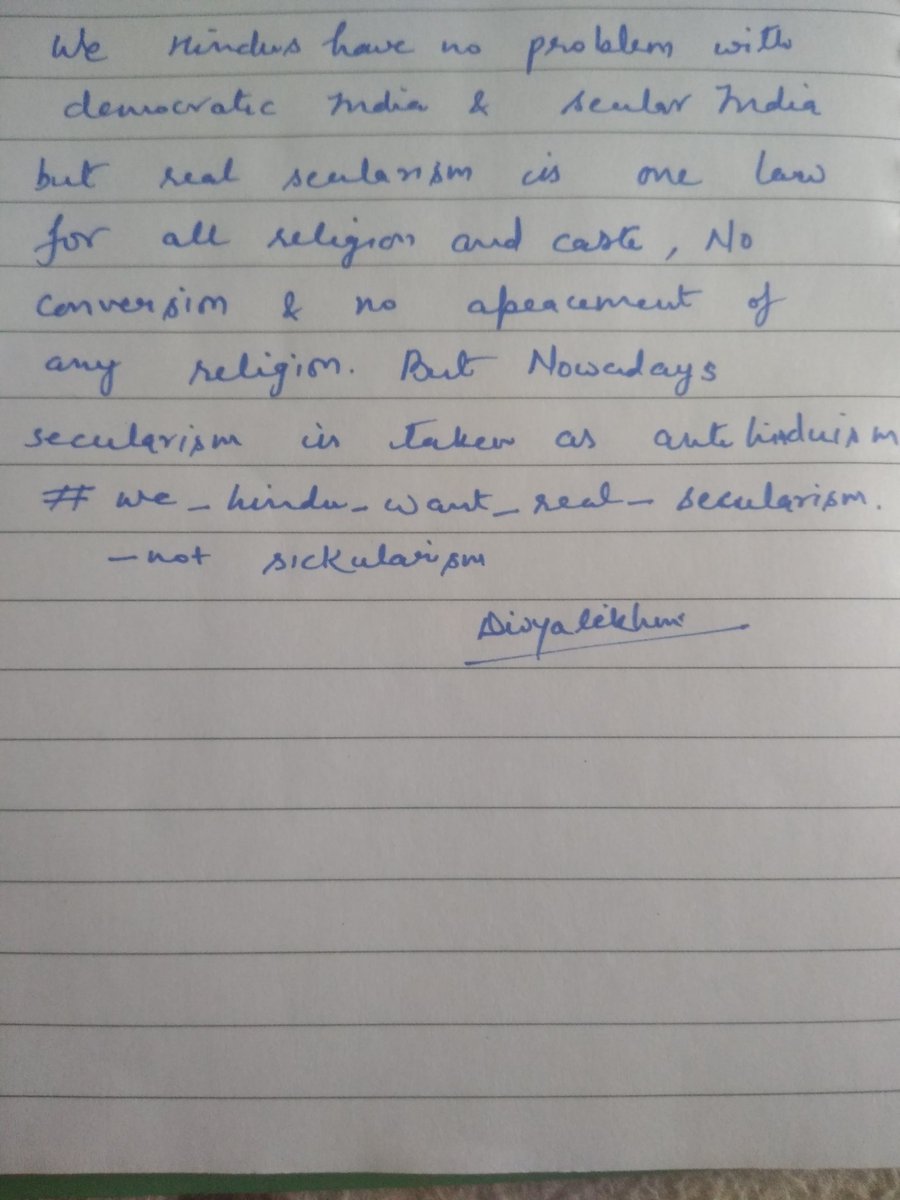 We Hindus have no problem with
democratic India & secular India
but real secularism is one law
for all religion and caste, No
conversion & no apeacement of
any religion. But Nowadays
secularism is taken as antehinduism
# we_hindu_want_real_secularism.
-not sickularism
Divyalekhni